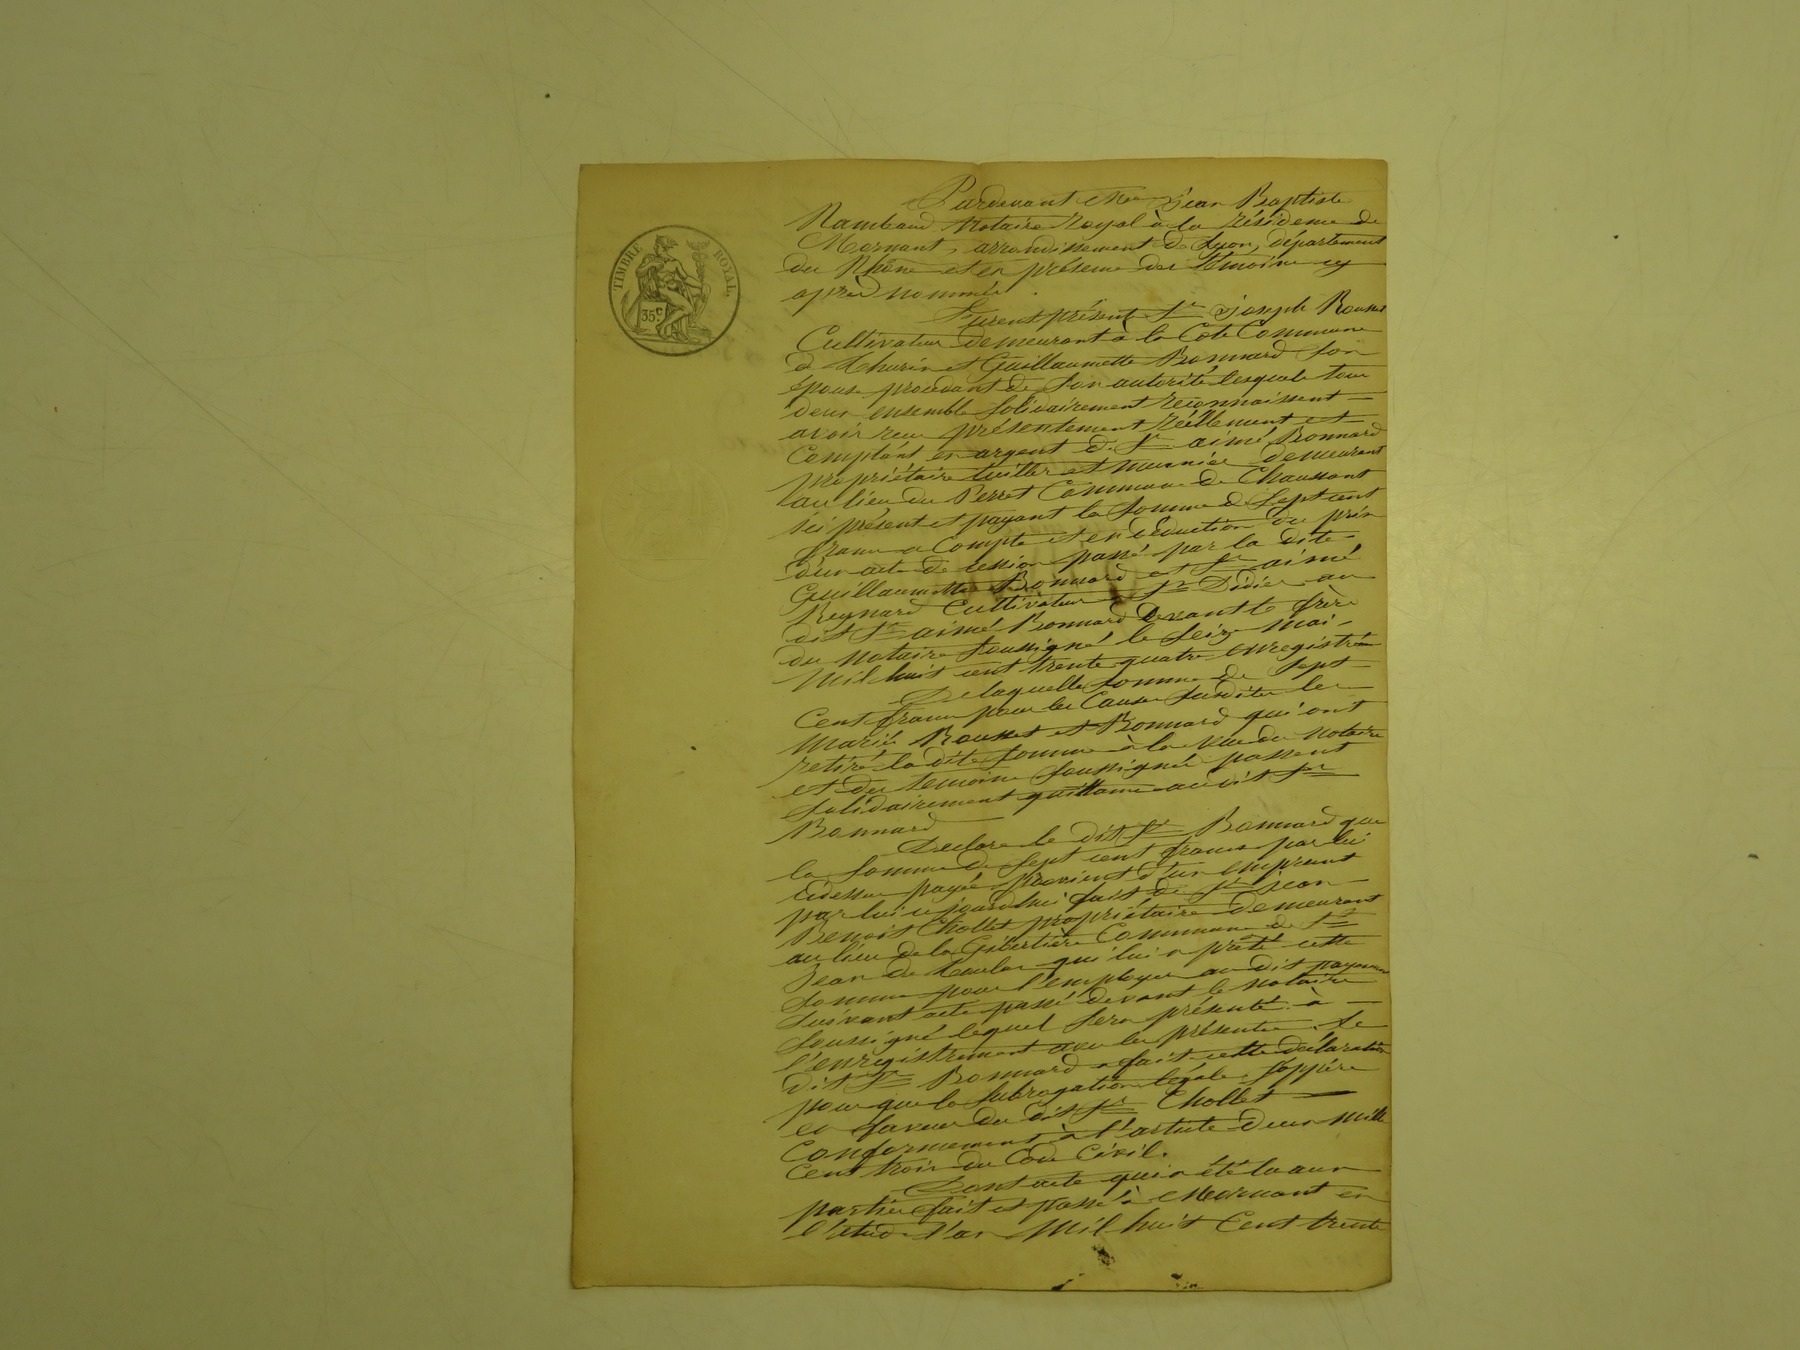 TIMBRE ROYAL.
35 c.
Pardevant Me Jean Baptiste
Rambaud Notaire Royal à la résidence de
Mornant, arrondissement de Lyon, département
du Rhône et en présence des témoins cy
après nommés.
Furent présent Sr Joseph Rousset
Cultivateur demeurant à la Cote Commune
de Thurin et Guillaumette Bonnard son
épouse procédant de son autorité lesquels tous
deux ensemble solidairement reconnaissent
avoir reçu présentement réellement et
Comptant en argent de Sr aimé Bonnard
propriétaire tuillier et meunier demeurant
au lieu du Perret Commune de Chaussant
ici présent et payant la somme de Sept cent
francs a Compte et en déduction du prix
d'un acte de cession passé par la dite
Guillaumette Bonnard et Sr aimé
Reynard Cultivateur à St Didier au
dit Sr aimé Bonnard devant le frère
du notaire soussigné le seize mai
mil huit cent trente quatre enregistré
De laquelle somme de Sept
Cent francs pour les Causes susdites les
mariés Rousset et Bonnard qui ont
retiré la dite somme à la vue du notaire
et des témoins soussignés passent
solidairement quittance au dit Sr
Bonnard
Déclare le dit Sr Bonnard que
la somme de sept cent francs par lui
cidessus payée provient d'un emprunt
par lui ce jourdhui fait de Sr Jean
Benoit Chollet propriétaire demeurant
au lieu de la Gibertière Commune de St
Jean de Toulas qui lui a prêté cette
somme pour l'employer au dit payement
suivant acte passé devant le notaire
soussigné lequel sera présenté à
l'enregistrement avec les présentes. Le
dit Sr Bonnard a fait cette déclaration
pour que la subrogation légale s'oppère
en faveur du dit Sr Chollet
Conformement à l'article deux mille
Cent trois du Code Civil.
Dont acte qui a été lu aux
parties fait et passé à Mornant en
l'étude l'an Mil huit Cent trente